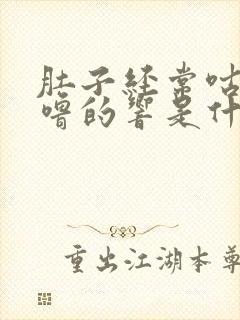 肚子经常咕
噜的响是什
重出江湖本尊